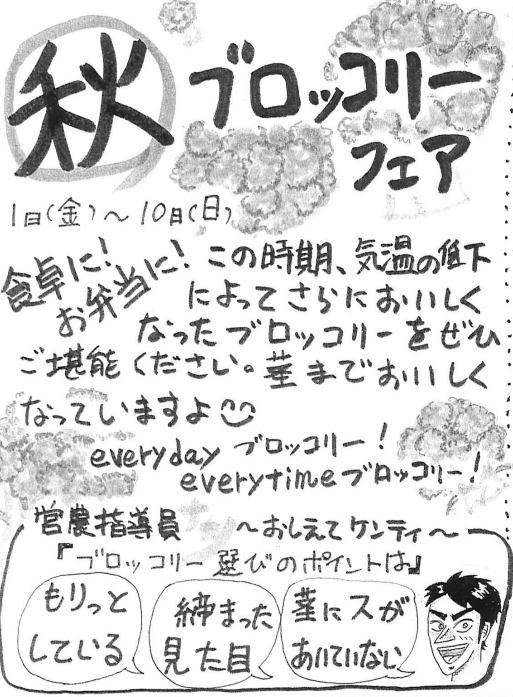 秋 ブロッコリー
フェア
1日(金)～10日(日)
食卓に!
お弁当に!
この時期、気温の低下
によってさらにおいしく
なったブロッコリーをぜひ
ご堪能ください。茎までおいしく
なっていますよ
everyday ブロッコリー!
everytimeブロッコリー!
営農指導員 ～おしえてケンティ～
『ブロッコリー選びのポイントは』
もりっと
している
締まった
見た目
茎にスが
あいていない